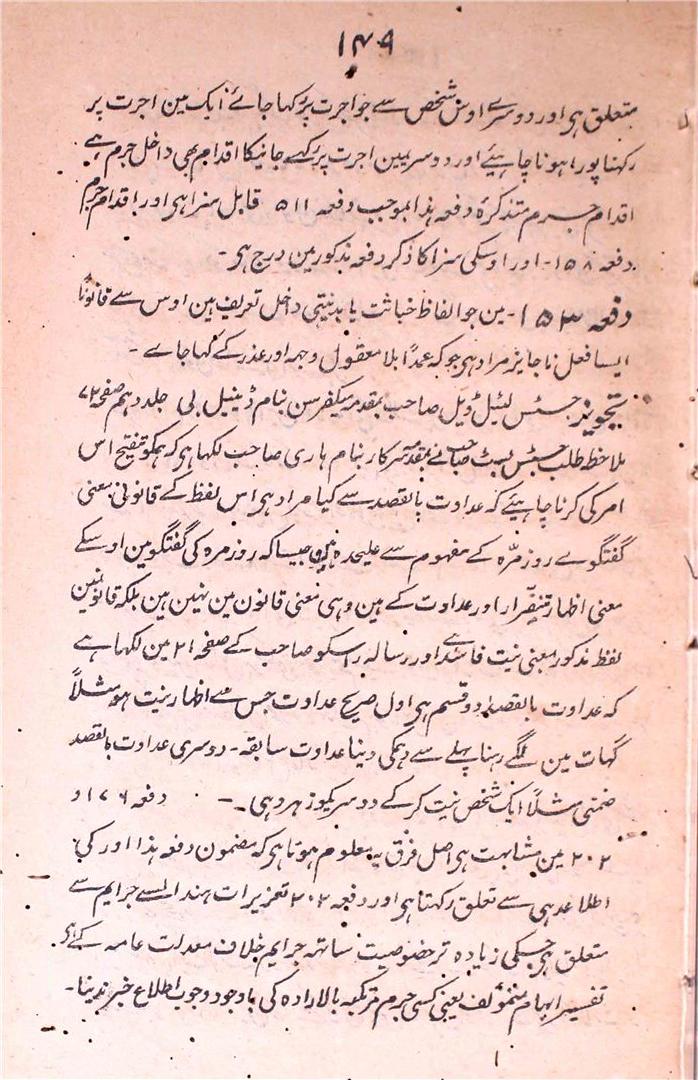 ۱۴۹
متعلق ہی اور دوسرے اوس شخص سے جو اجرت پر رکہا جائے ایک مین اجرت پر
رکہنا پورا ہونا چاہیئے اور دوسریمین اجرت پر رکہے جانیکا اقدام بھی داخل جرم ہے
اقدام جرم متذکرۂ دفعہ ہذا بموجب دفعہ ۵۱۱ قابل سزا ہی اور اقدام جرم
دفعہ ۱۵۸- اور اوسکی سزا کا ذکر دفعہ مذکور مین درج ہی -
دفعہ ۱۵۳ - مین جو الفاظ خباثت یا بدنیتی داخل تعریف ہین اوس سے قانوناً
ایسا فعل ناجایز مراد ہی جو کہ عمداً بلا معقول وجہ اور عذر کے کہا جاے -
تجویز جسٹس لیٹل ڈیل صاحب بمقدمہ میکفرسن بنام ڈینیل بی جلد دہم صفحہ ۷۲
ملاحظہ طلب جسٹس بسٹ صاحب نے بمقدمہ سرکار بنام ہاری صاحب لکہا ہی کہ ہمکو تنقیح اس
امر کی کرنا چاہیئے کہ عداوت بالقصد سے کیا مراد ہی اس لفظ کے قانونی معنی
گفتگوے روز مرّہ کے مفہوم سے علیحدہ ہین جیسا کہ روز مرہ کی گفتگو مین اوسکے
معنی اظہار تنفّر اور عداوت کے ہین وہی معنی قانون مین نہین ہین بلکہ قانونمین
لفظ مذکور بمعنی نیت فاسد ہے اور رسالہ راسکو صاحب کے صفحہ ۲۱ مین لکہا ہے
کہ عداوت بالقصد دو قسم ہی اول صریح عداوت جس سے اظہار نیت ہو مثلاً
گہات مین لگے رہنا پہلے سے دہمکی دینا عداوت سابقہ - دوسری عداوت بالقصد
ضمنی مثلاً ایک شخص نیت کرکے دوسریکو زہر دہی - دفعہ ۱۷۶ و
۲۰۲ مین مشابہت ہی اصل فرق یہ معلوم ہوتا ہی کہ مضمون دفعہ ہذا اور کی
اطلاعدہی سے تعلق رکہتا ہی اور دفعہ ۲۰۲ تعزیرات ہند ایسے جرایم سے
متعلق ہی جسکی زیادہ تر خصوصیت ساتہہ جرایم خلاف معدلت عامہ کے ہی
تفسیر ابہام مؤلف یعنی کسی جرم مرتکبہ بالارادہ کی باوجود وجوب اطلاع خبر ندینا -